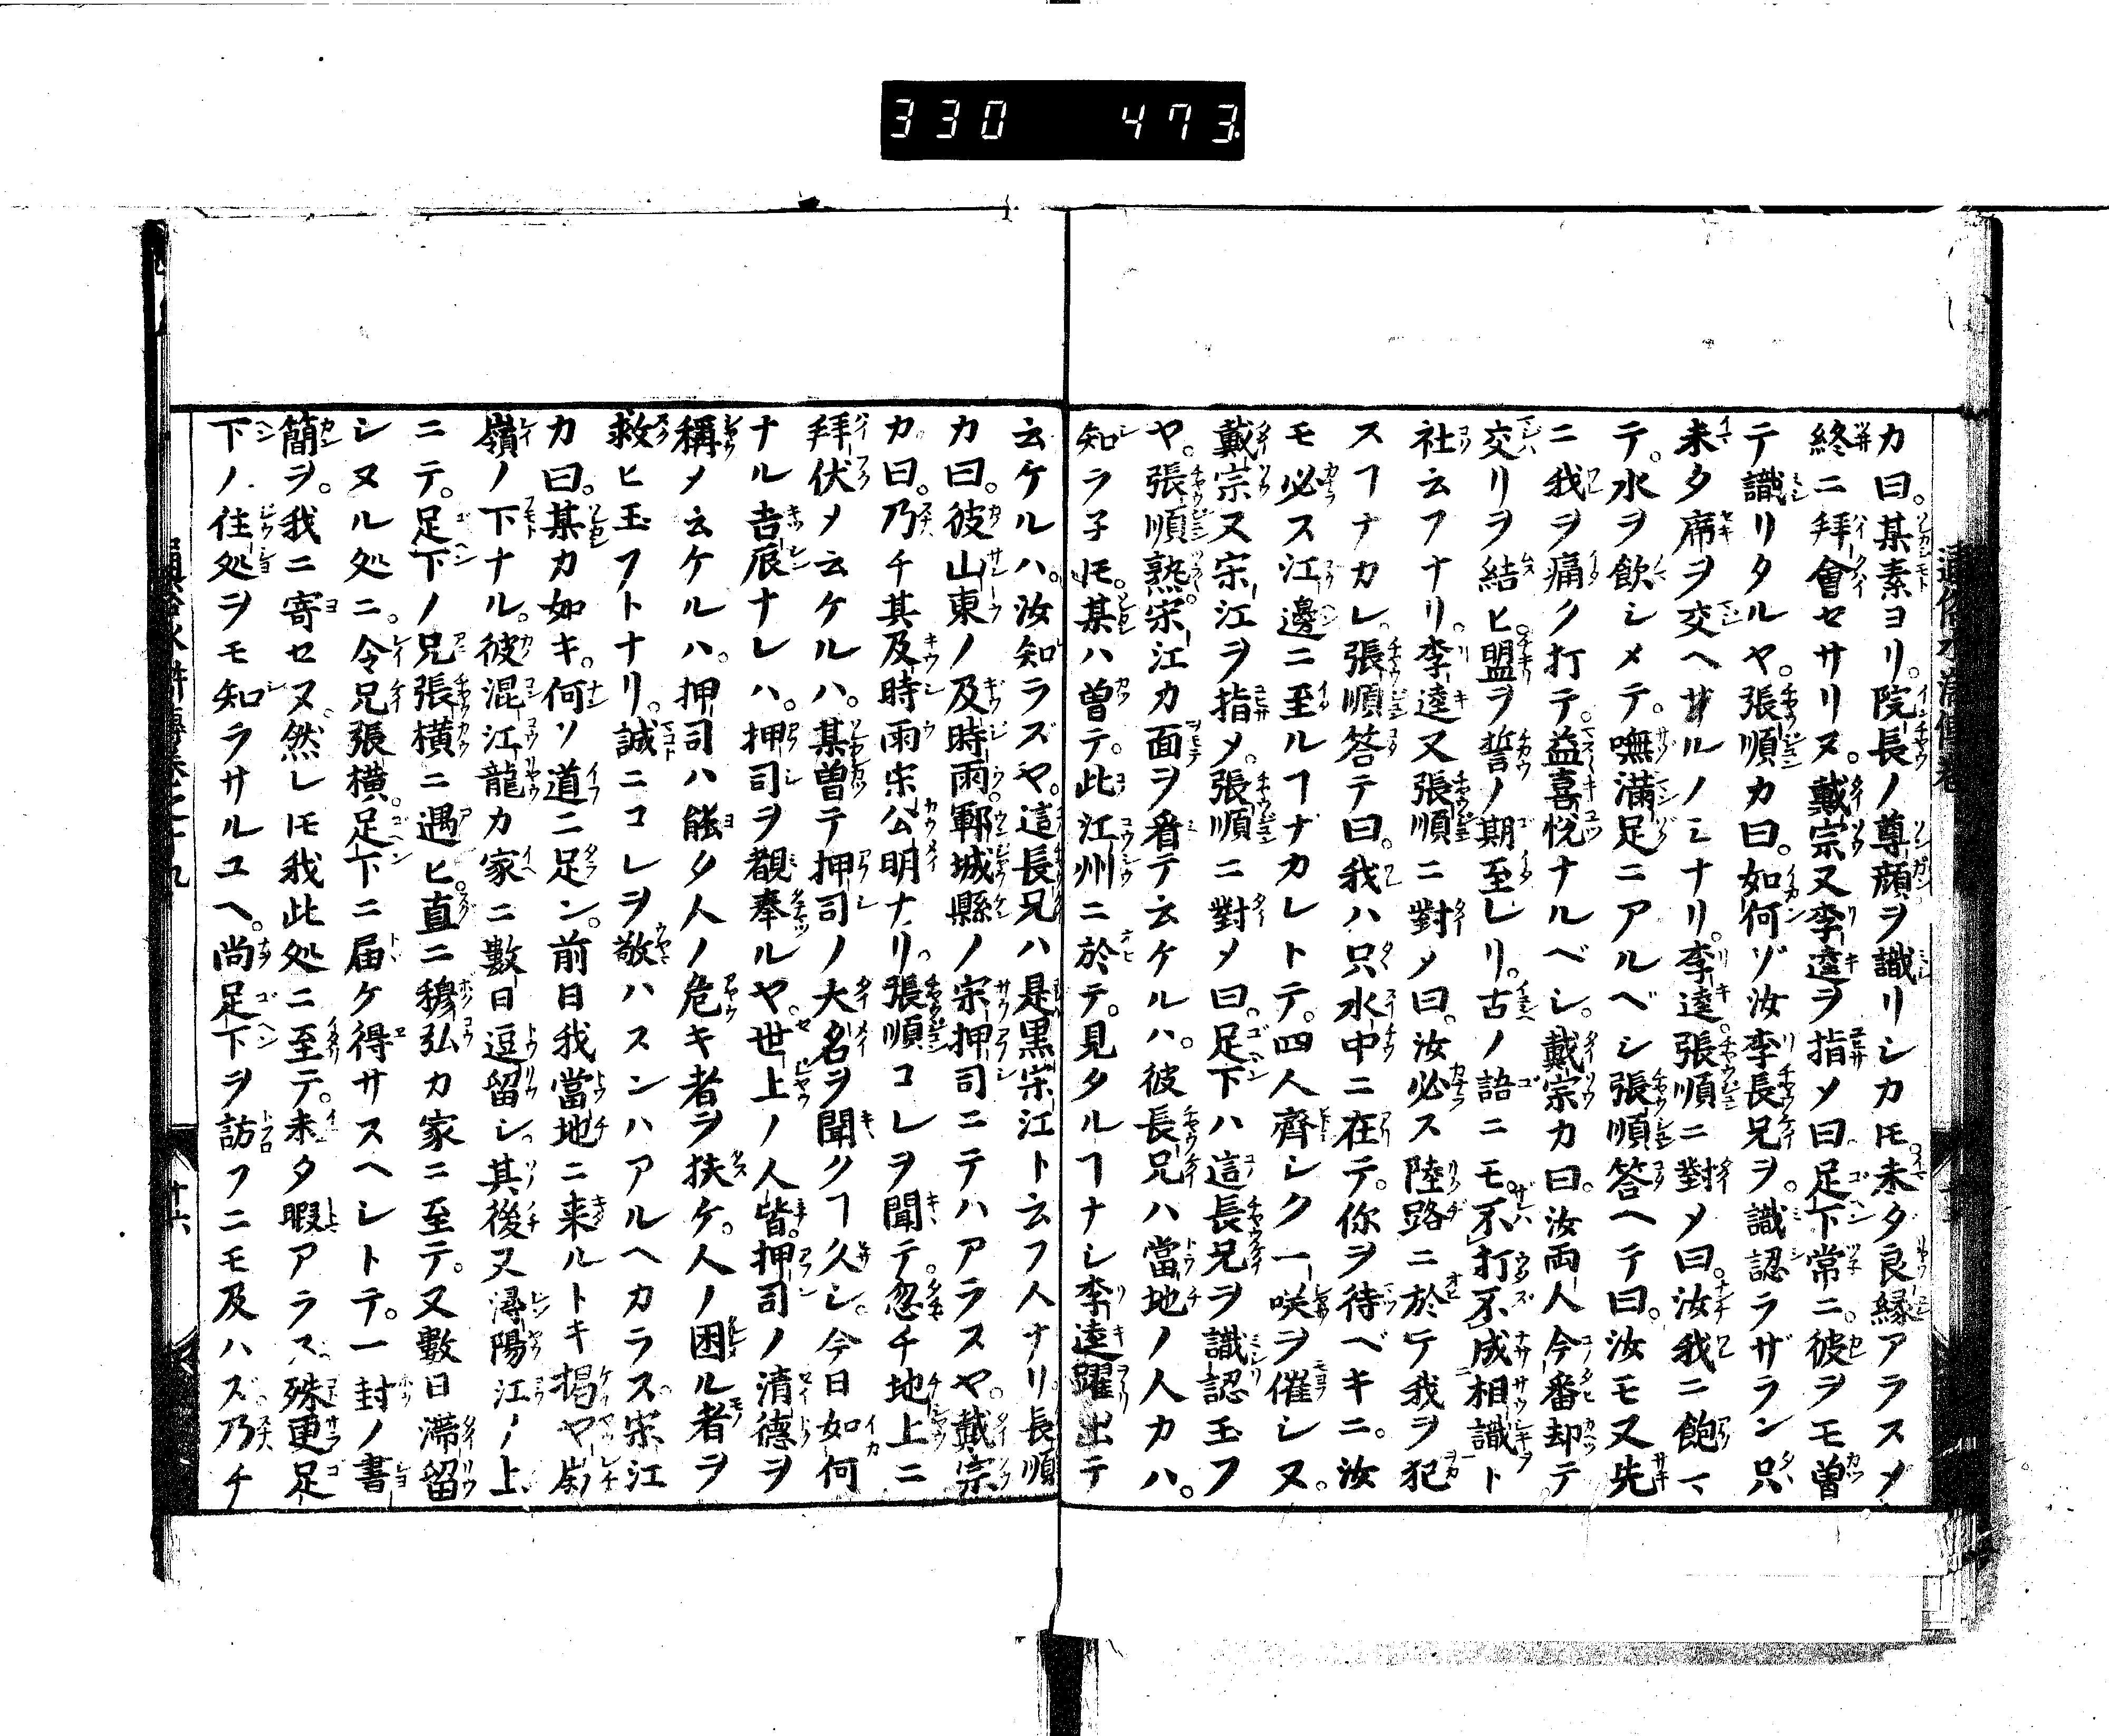 330 473
カ曰。某素ヨリ。院長ノ尊顔ヲ識リシカㇳモ。未タ良縁アラスメ
終ニ拜會セサリヌ。戴宗又李逵ヲ指メ曰。足下常ニ。彼ヲモ曽
テ識リタルヤ。張順カ曰。如何ゾ汝李長兄ヲ。識認ラザラン只
未タ席ヲ交ヘザルノミナリ。李逵。張順ニ對メ曰。汝我ニ飽マ
テ。水ヲ飲シメテ。嘸滿足ニアルベシ張順答ヘテ曰。汝モ又先
ニ我ヲ痛ク打テ。益喜悅ナルベシ。戴宗カ曰。汝両人今番却テ
交リヲ結ヒ。盟ヲ誓ノ期至レリ。古ノ語ニモ。不打不成相識ト
社云フナリ。李逵又張順ニ對メ曰。汝必ス陸路ニ於テ我ヲ犯
スヿナカレ。張順答テ曰。我ハ只水中ニ在テ。你ヲ待ベキニ。汝
モ必ス江邊ニ至ルヿナカレトテ。四人齊シク一咲ヲ催シヌ。
戴宗又宋江ヲ指メ。張順ニ對メ曰。足下ハ這長兄ヲ識認玉フ
ヤ。張順熟宋江カ面ヲ看テ云ケルハ。彼長兄ハ當地ノ人カハ。
知ラ子ㇳモ。某ハ曽テ。此江州ニ於テ。見タルヿナシ李逵躍出テ
云ケルハ。汝知ラズヤ。這長兄ハ是黒宋江ト云フ人ナリ長順
カ曰。彼山東ノ及時雨。鄆城縣ノ宋押司ニテハアラスヤ。戴宗
カ曰。乃チ其及時雨宋公明ナリ。張順コレヲ聞テ。忽チ地上ニ
拜伏メ云ケルハ。某曽テ押司ノ大名ヲ聞クヿ久シ。今日如何
ナル吉辰ナレハ。押司ヲ覩奉ルヤ。世上ノ人皆。押司ノ清德ヲ
稱メ云ケルハ。押司ハ能タ人ノ危キ者ヲ扶ケ。人ノ困ル者ヲ
救ヒ玉フトナリ。誠ニコレヲ敬ハスンハアルヘカラス。宋江
カ曰。某カ如キ。何ソ道ニ足ン。前日我當地ニ来ルトキ掲ヤ嶺
嶺ノ下ナル。彼混江龍カ家ニ數日逗留シ。其後又潯陽江ノ上
ニテ。足下ノ兄張横ニ遇ヒ。直ニ穆弘カ家ニ至テ。又數日滯留
シヌル処ニ。令兄張横。足下ニ届ケ得サスヘシトテ。一封ノ書
簡ヲ。我ニ寄セヌ。然レㇳモ我此処ニ至テ。未タ暇アラス。殊更足
下ノ住処ヲモ知ラサルユヘ。尚足下ヲ訪フニモ及ハズ。乃チ
十六